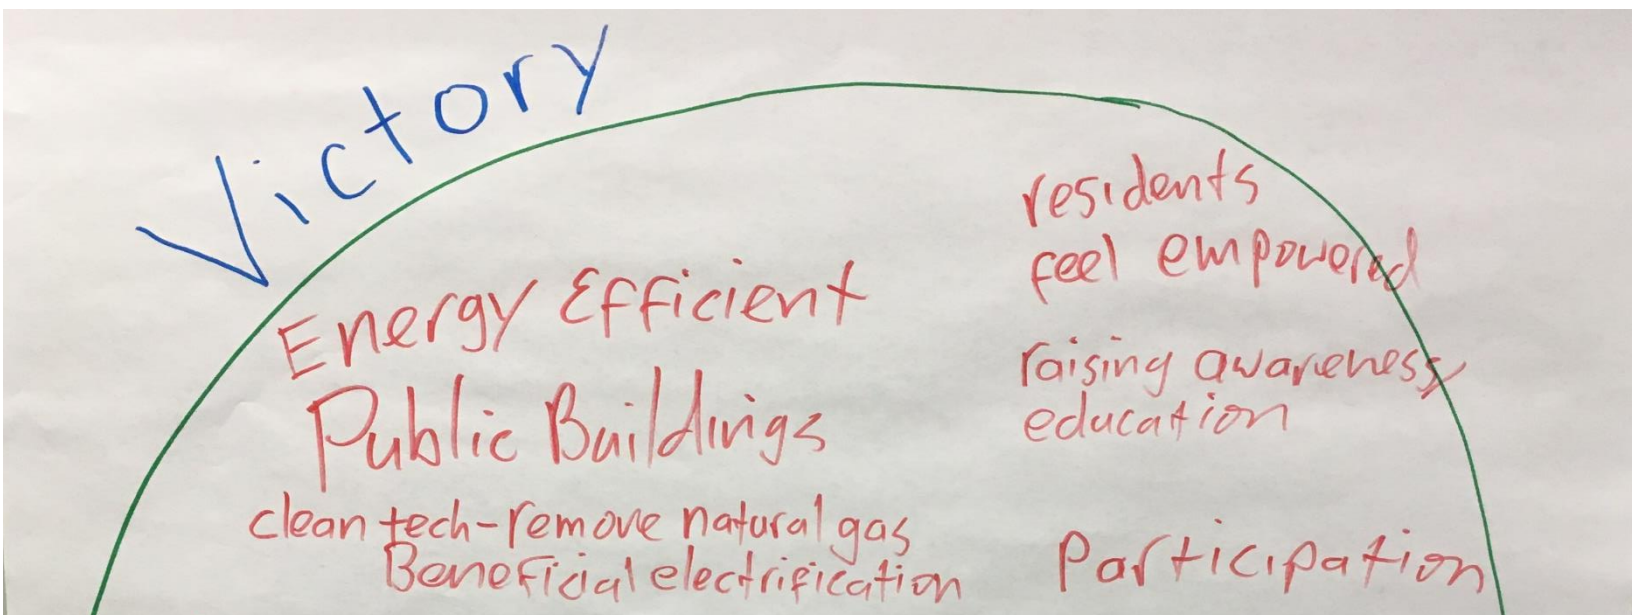 Victory
Energy Efficient
Public Buildings
clean tech-remove natural gas
Beneficial electrification
residents
feel empowered
raising awareness/
education
Participation